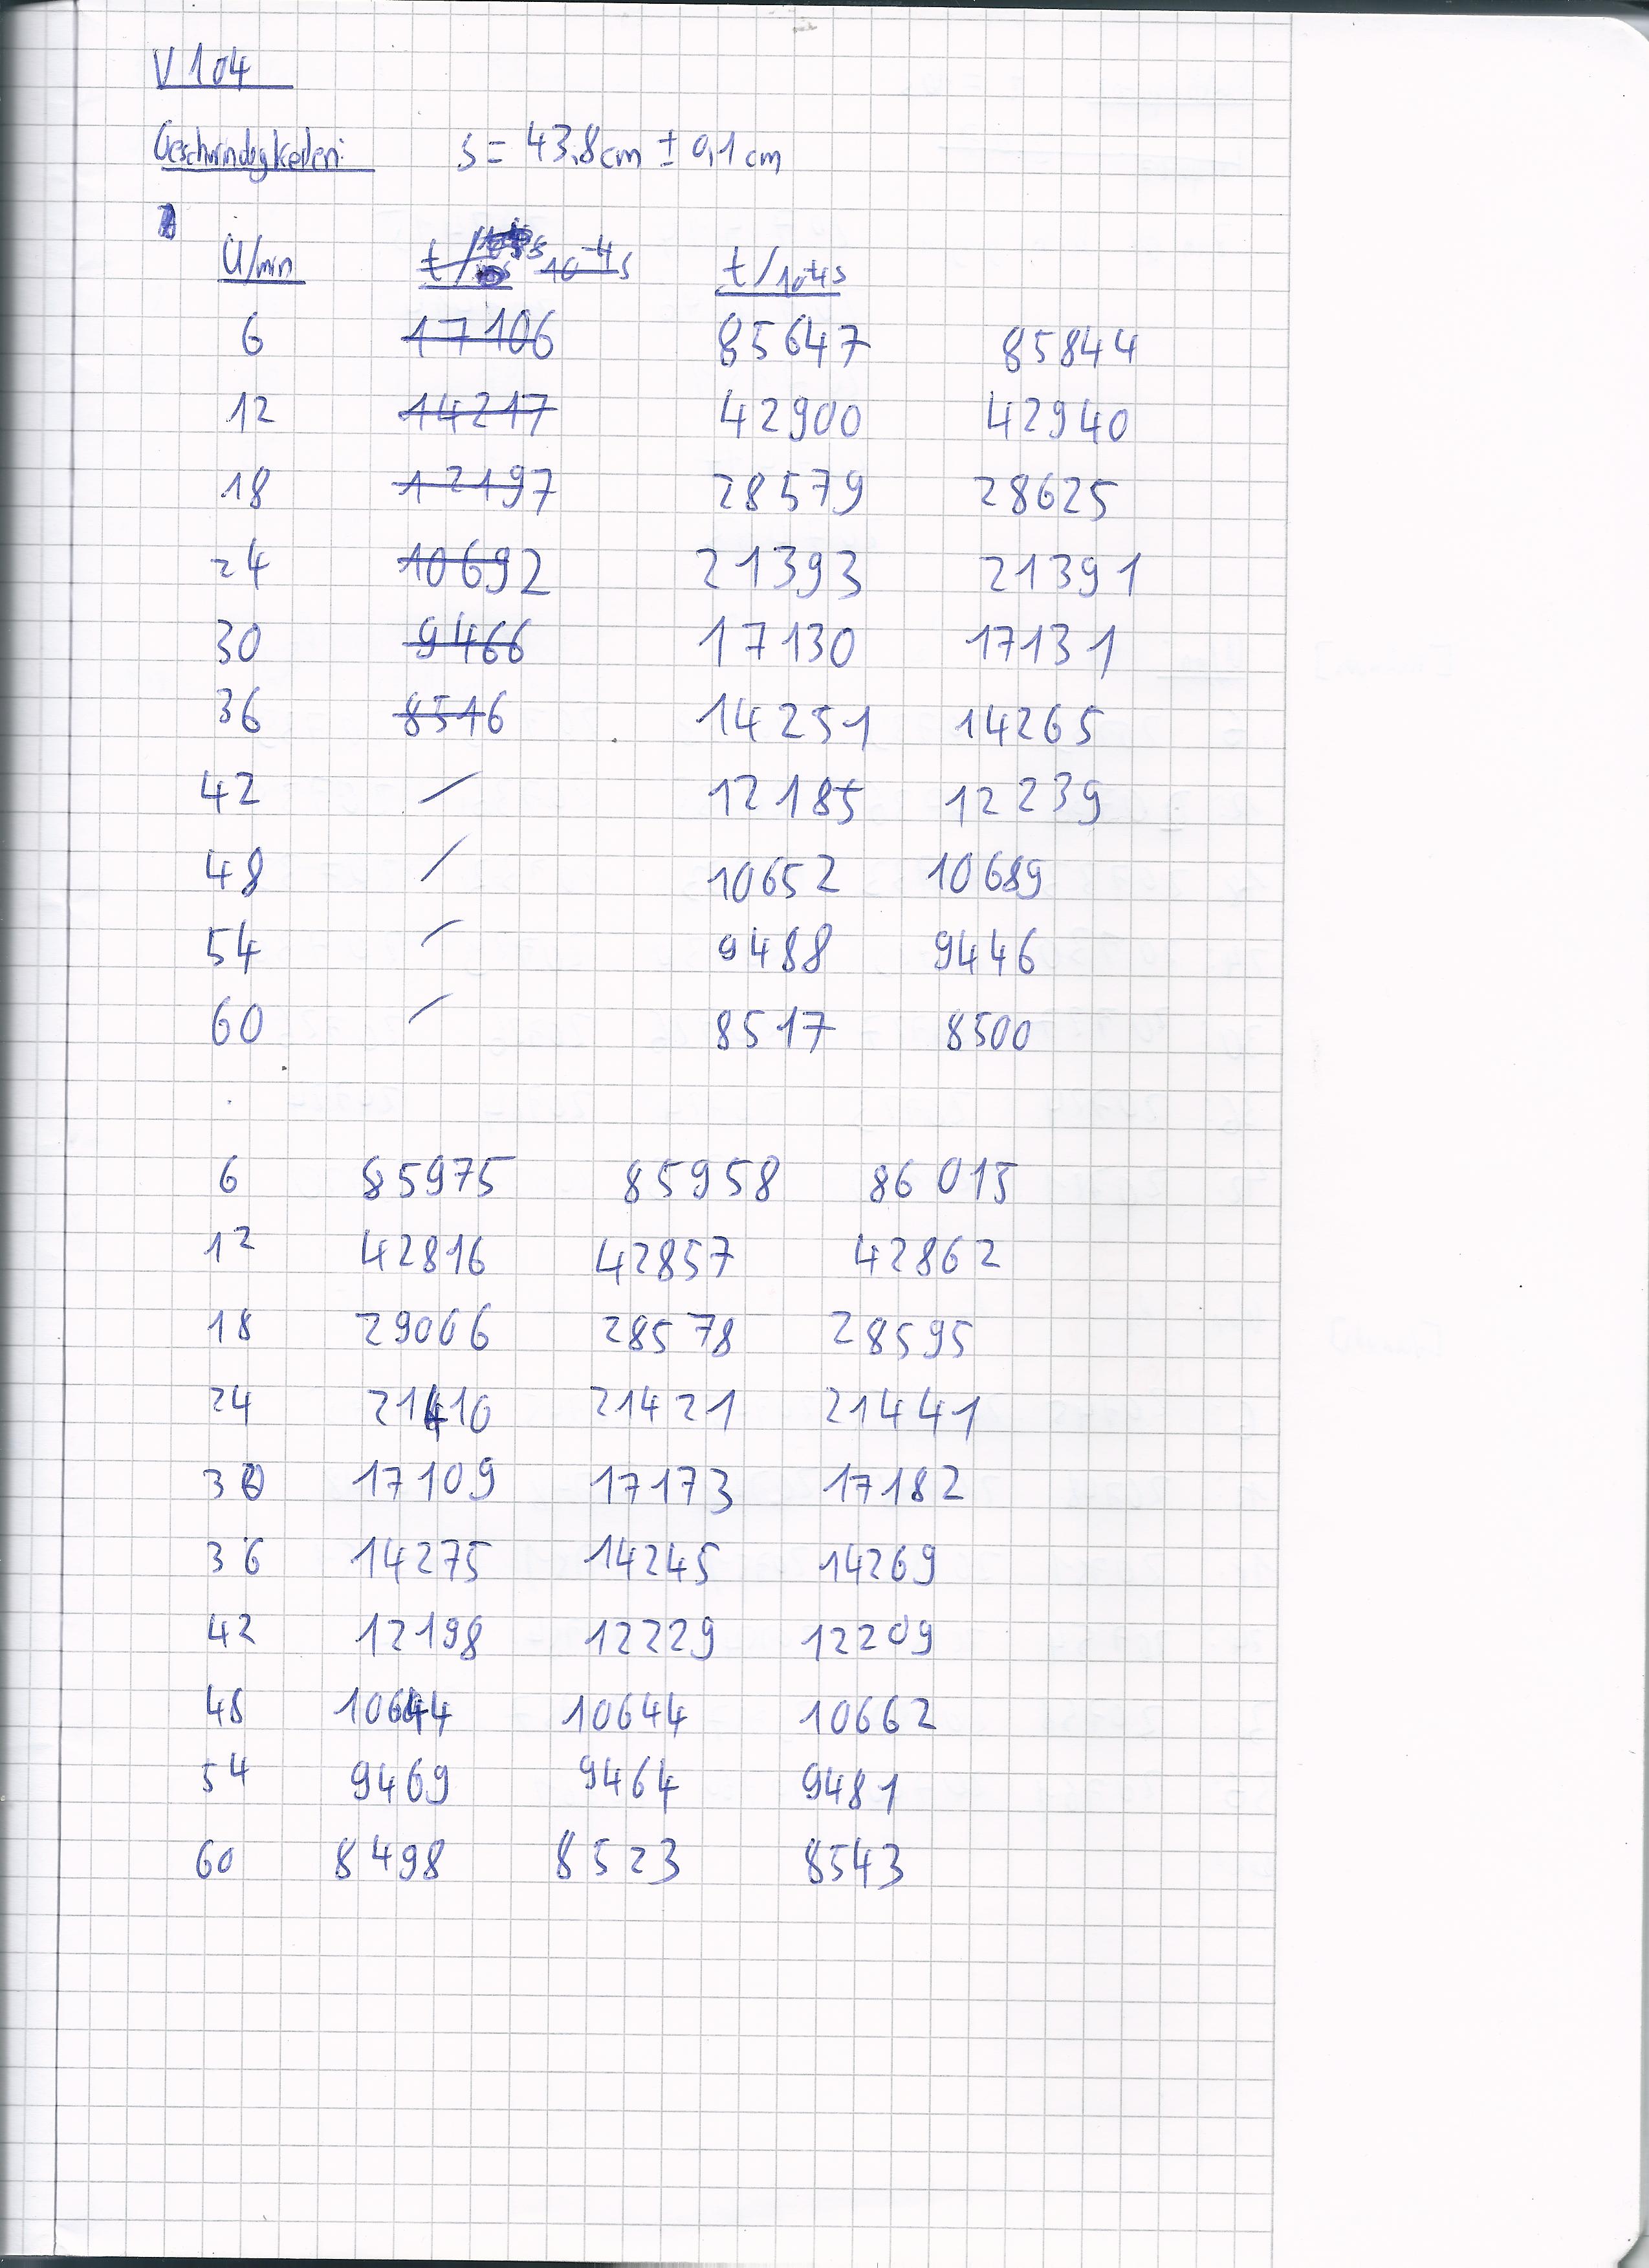 V104
Geschwindigkeiten: s = 43,8cm ± 0,1cm
U/min t/ 10⁻⁴s t/10⁻⁴s
6 17106 85647 85844
12 14217 42900 42940
18 12197 28579 28625
24 10692 21393 21391
30 9466 17130 17131
36 8516 14251 14265
42 / 12185 12239
48 / 10652 10689
54 / 9488 9446
60 / 8517 8500
6 85975 85958 86015
12 42816 42857 42862
18 29006 28578 28595
24 21410 21421 21441
30 17109 17173 17182
36 14275 14245 14269
42 12198 12229 12209
48 10644 10644 10662
54 9469 9464 9481
60 8498 8523 8543